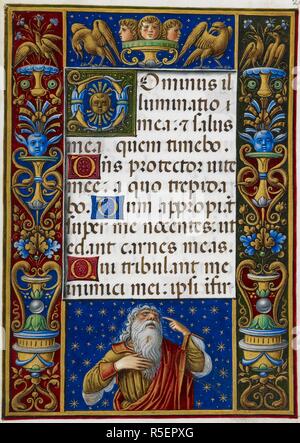 Dominus il
luminatio
mea: ⁊ salus
mea quem timebo.
Dñs protector vite
mee: a quo trepida
bo. Dum appropiāt
super me nocentes: ut
edant carnes meas.
Qui tribulant me
inimici mei: ipsi ifir
alamy
Image ID: R5EPXG
www.alamy.com